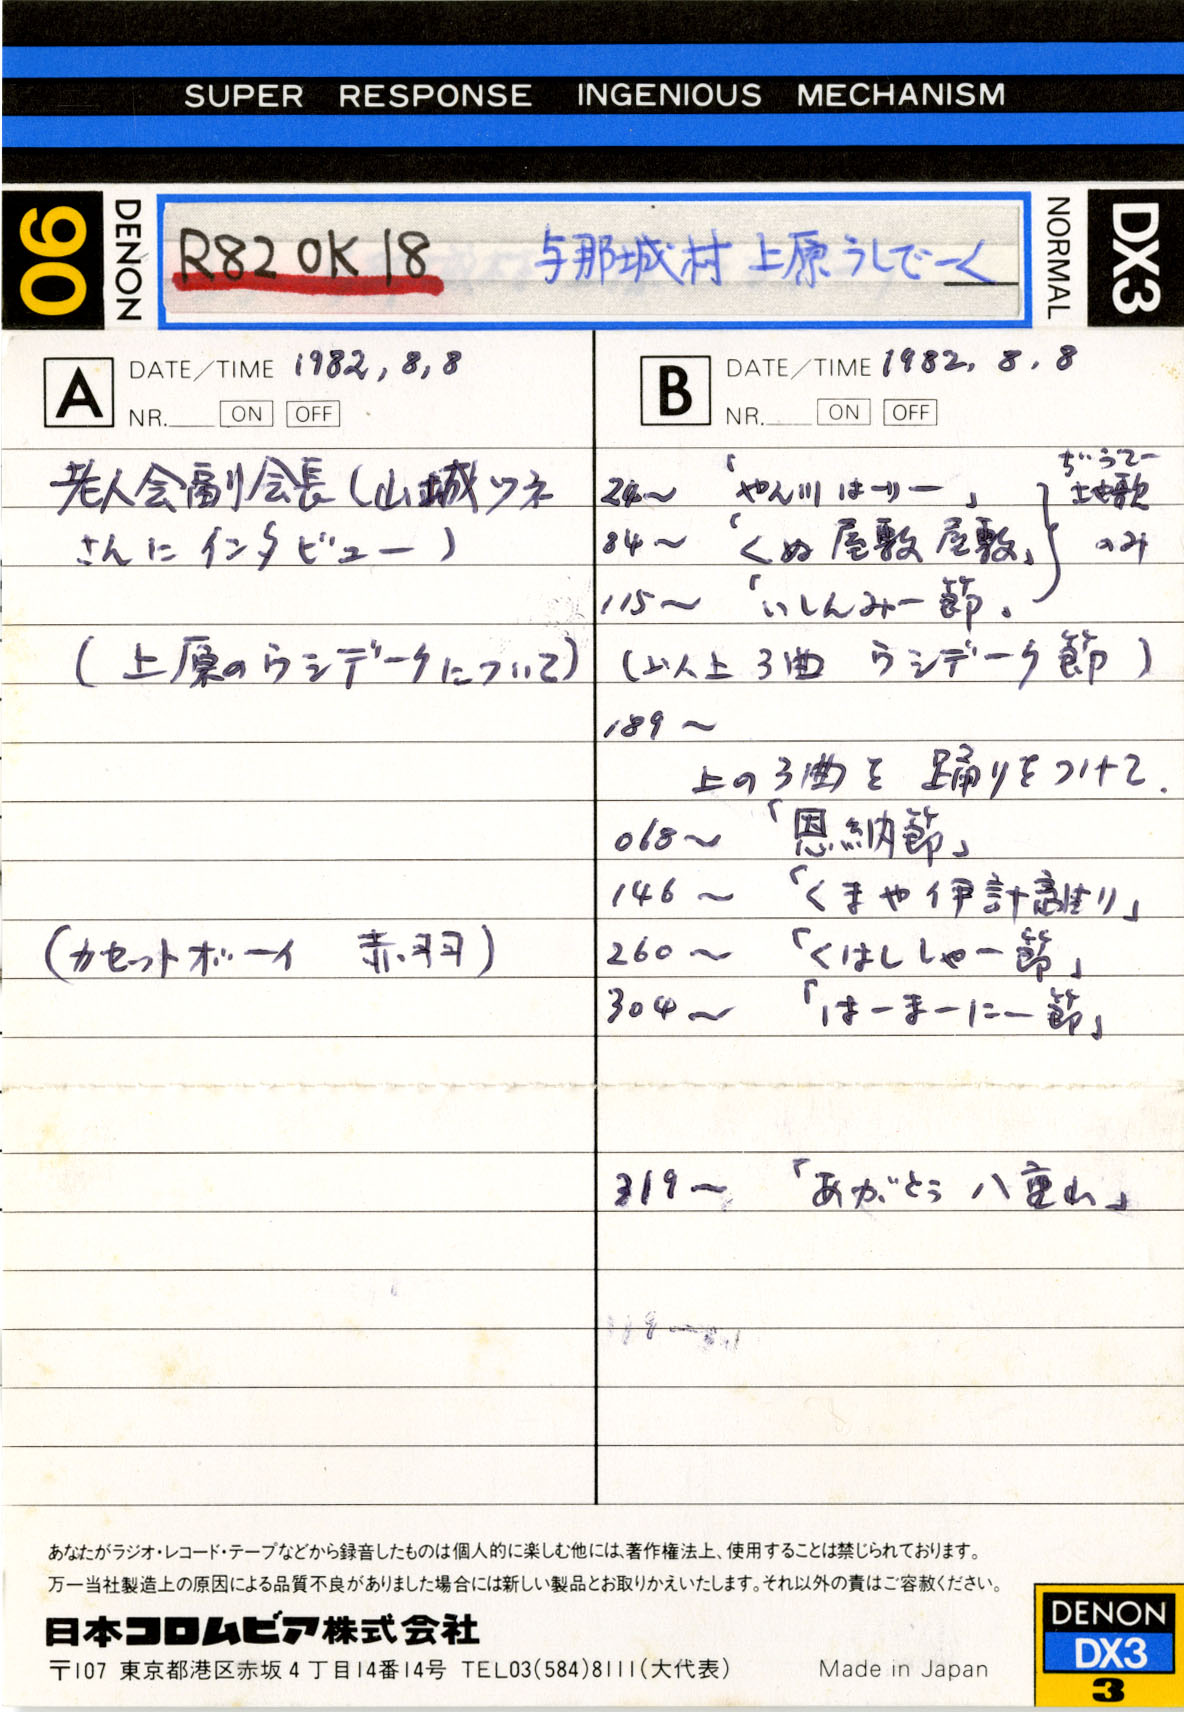 SUPER RESPONSE INGENIOUS MECHANISM
90
DENON
R82 OK 18 与那城村 上原うしでーく
NORMAL
DX3
A DATE/TIME 1982,8,8
NR. ON OFF
老人会副会長(山城ツネ
さんにインタビュー)
(上原のウシデークについて)
(カセットボーイ 赤羽)
B DATE/TIME 1982.8.8
NR. ON OFF
24~ 「やん川はーりー」
84~ 「くぬ屋敷屋敷」
115~ 「いしんみー節」
ぢうてー
地歌
のみ
(以上3曲 ウシデーク節)
189~
上の3曲を 踊りをつけて.
068~ 「恩納節」
146~ 「くまや伊計離り」
260~ 「くはしゃー節」
304~ 「はーまーにー節」
319~ 「あがとぅ 八重山」
あなたがラジオ・レコード・テープなどから録音したものは個人的に楽しむ他には、著作権法上、使用することは禁じられております。
万一当社製造上の原因による品質不良がありました場合には新しい製品とお取りかえいたします。それ以外の責はご容赦ください。
日本コロムビア株式会社
〒107 東京都港区赤坂4丁目14番14号 TEL03(584)8111(大代表)
Made in Japan
DENON
DX3
3